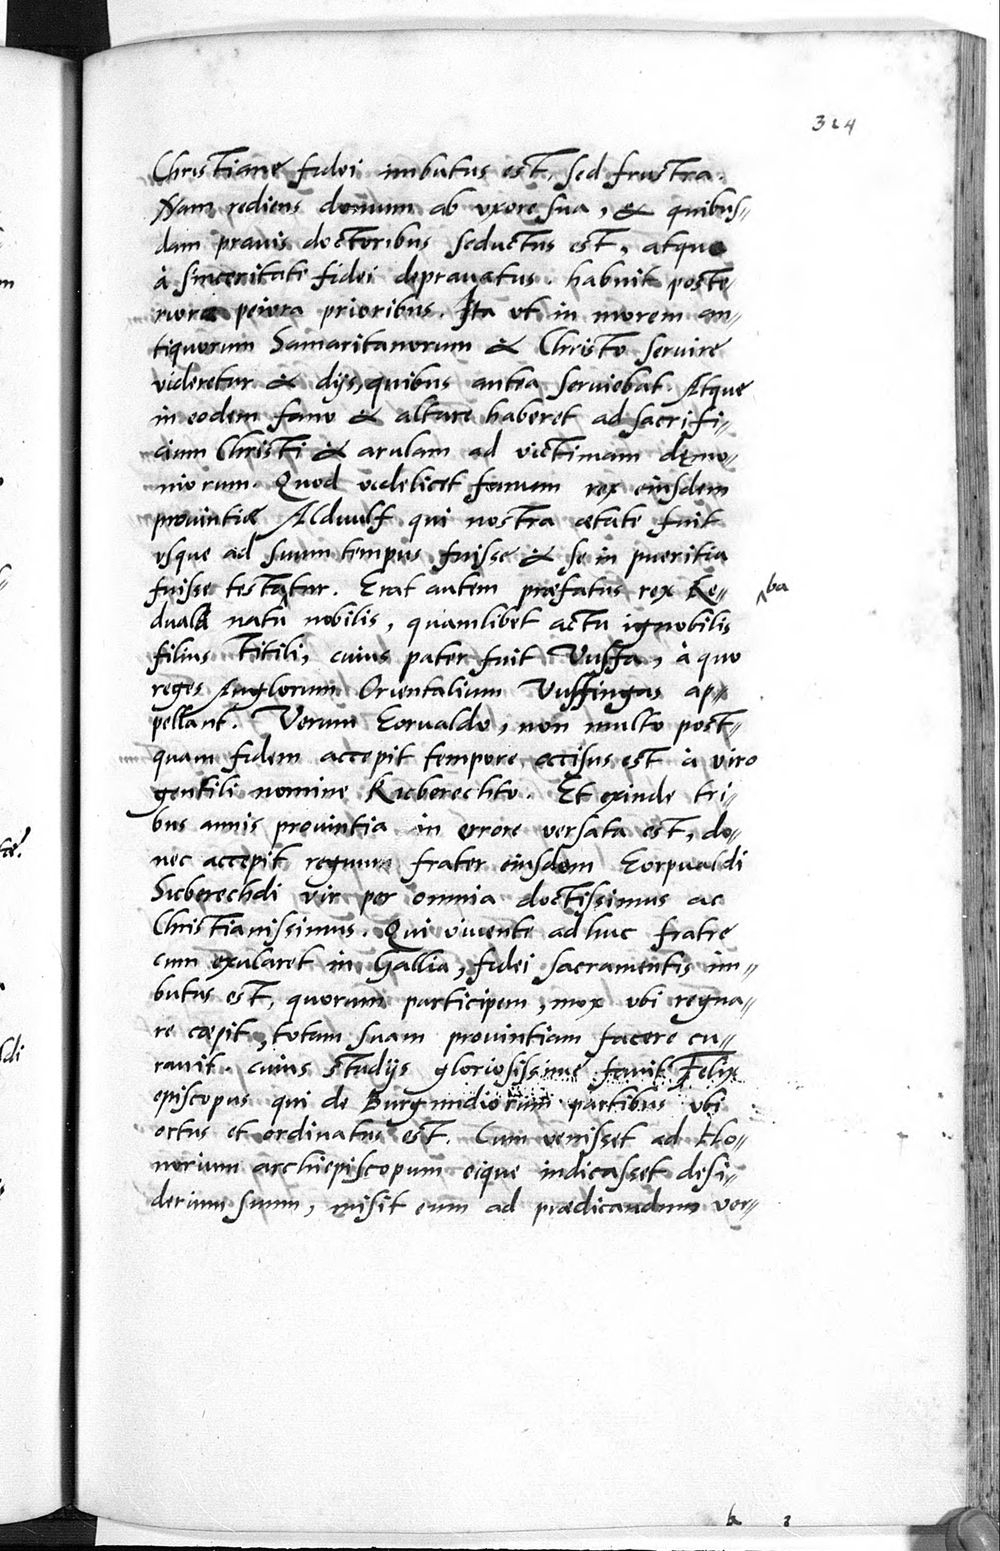 324
Christianę fidei imbutus est, sed frustra.
Nam rediens domum ab uxore sua, & quibus〃
dam prauis doctoribus seductus est, atque
à sinceritate fidei deprauatus. habuit poste〃
riora peiora prioribus. Ita vt in morem an〃
tiquorum Samaritanorum & Christo seruire
videretur & dijs, quibus antea seruiebat. Atque
in eodem fano & altare haberet ad sacrifi〃
cium Christi & arulam ad victimam dęmo〃
niorum. Quod videlicet fanum rex eiusdem
prouintiæ Alduulf qui nostra ætate fuit
vsque ad suum tempus fuisse & se in pueritia
fuisse testatur. Erat autem præfatus rex Re〃
duald natu nobilis, quamlibet actu ignobilis
ba
filius Titili, cuius pater fuit Vuffa, à quo
reges Anglorum Orientalium Vuffingas ap〃
pellant. Verum Eorualdo, non multo post〃
quam fidem accepit tempore, accisus est à viro
gentili nomine Ricberechto. Et exinde tri〃
bus annis prouintia in errore versata est, do〃
nec accepit regnum frater eiusdem Eorpualdi
Sicberechdi vir per omnia doctissimus ac
Christianissimus. Qui viuente adhuc fratre
cum exularet in Gallia, fidei sacramentis im〃
butus est, quorum participem, mox vbi regna〃
re cœpit, totam suam prouintiam facere cu〃
rauit. cuius studijs gloriosissimè fauit Felix
episcopus qui de Burgundiorum partibus vbi
ortus et ordinatus est. Cum venisset ad Ho〃
norium archiepiscopum eique indicasset desi〃
derium suum, misit eum ad prædicandum ver〃